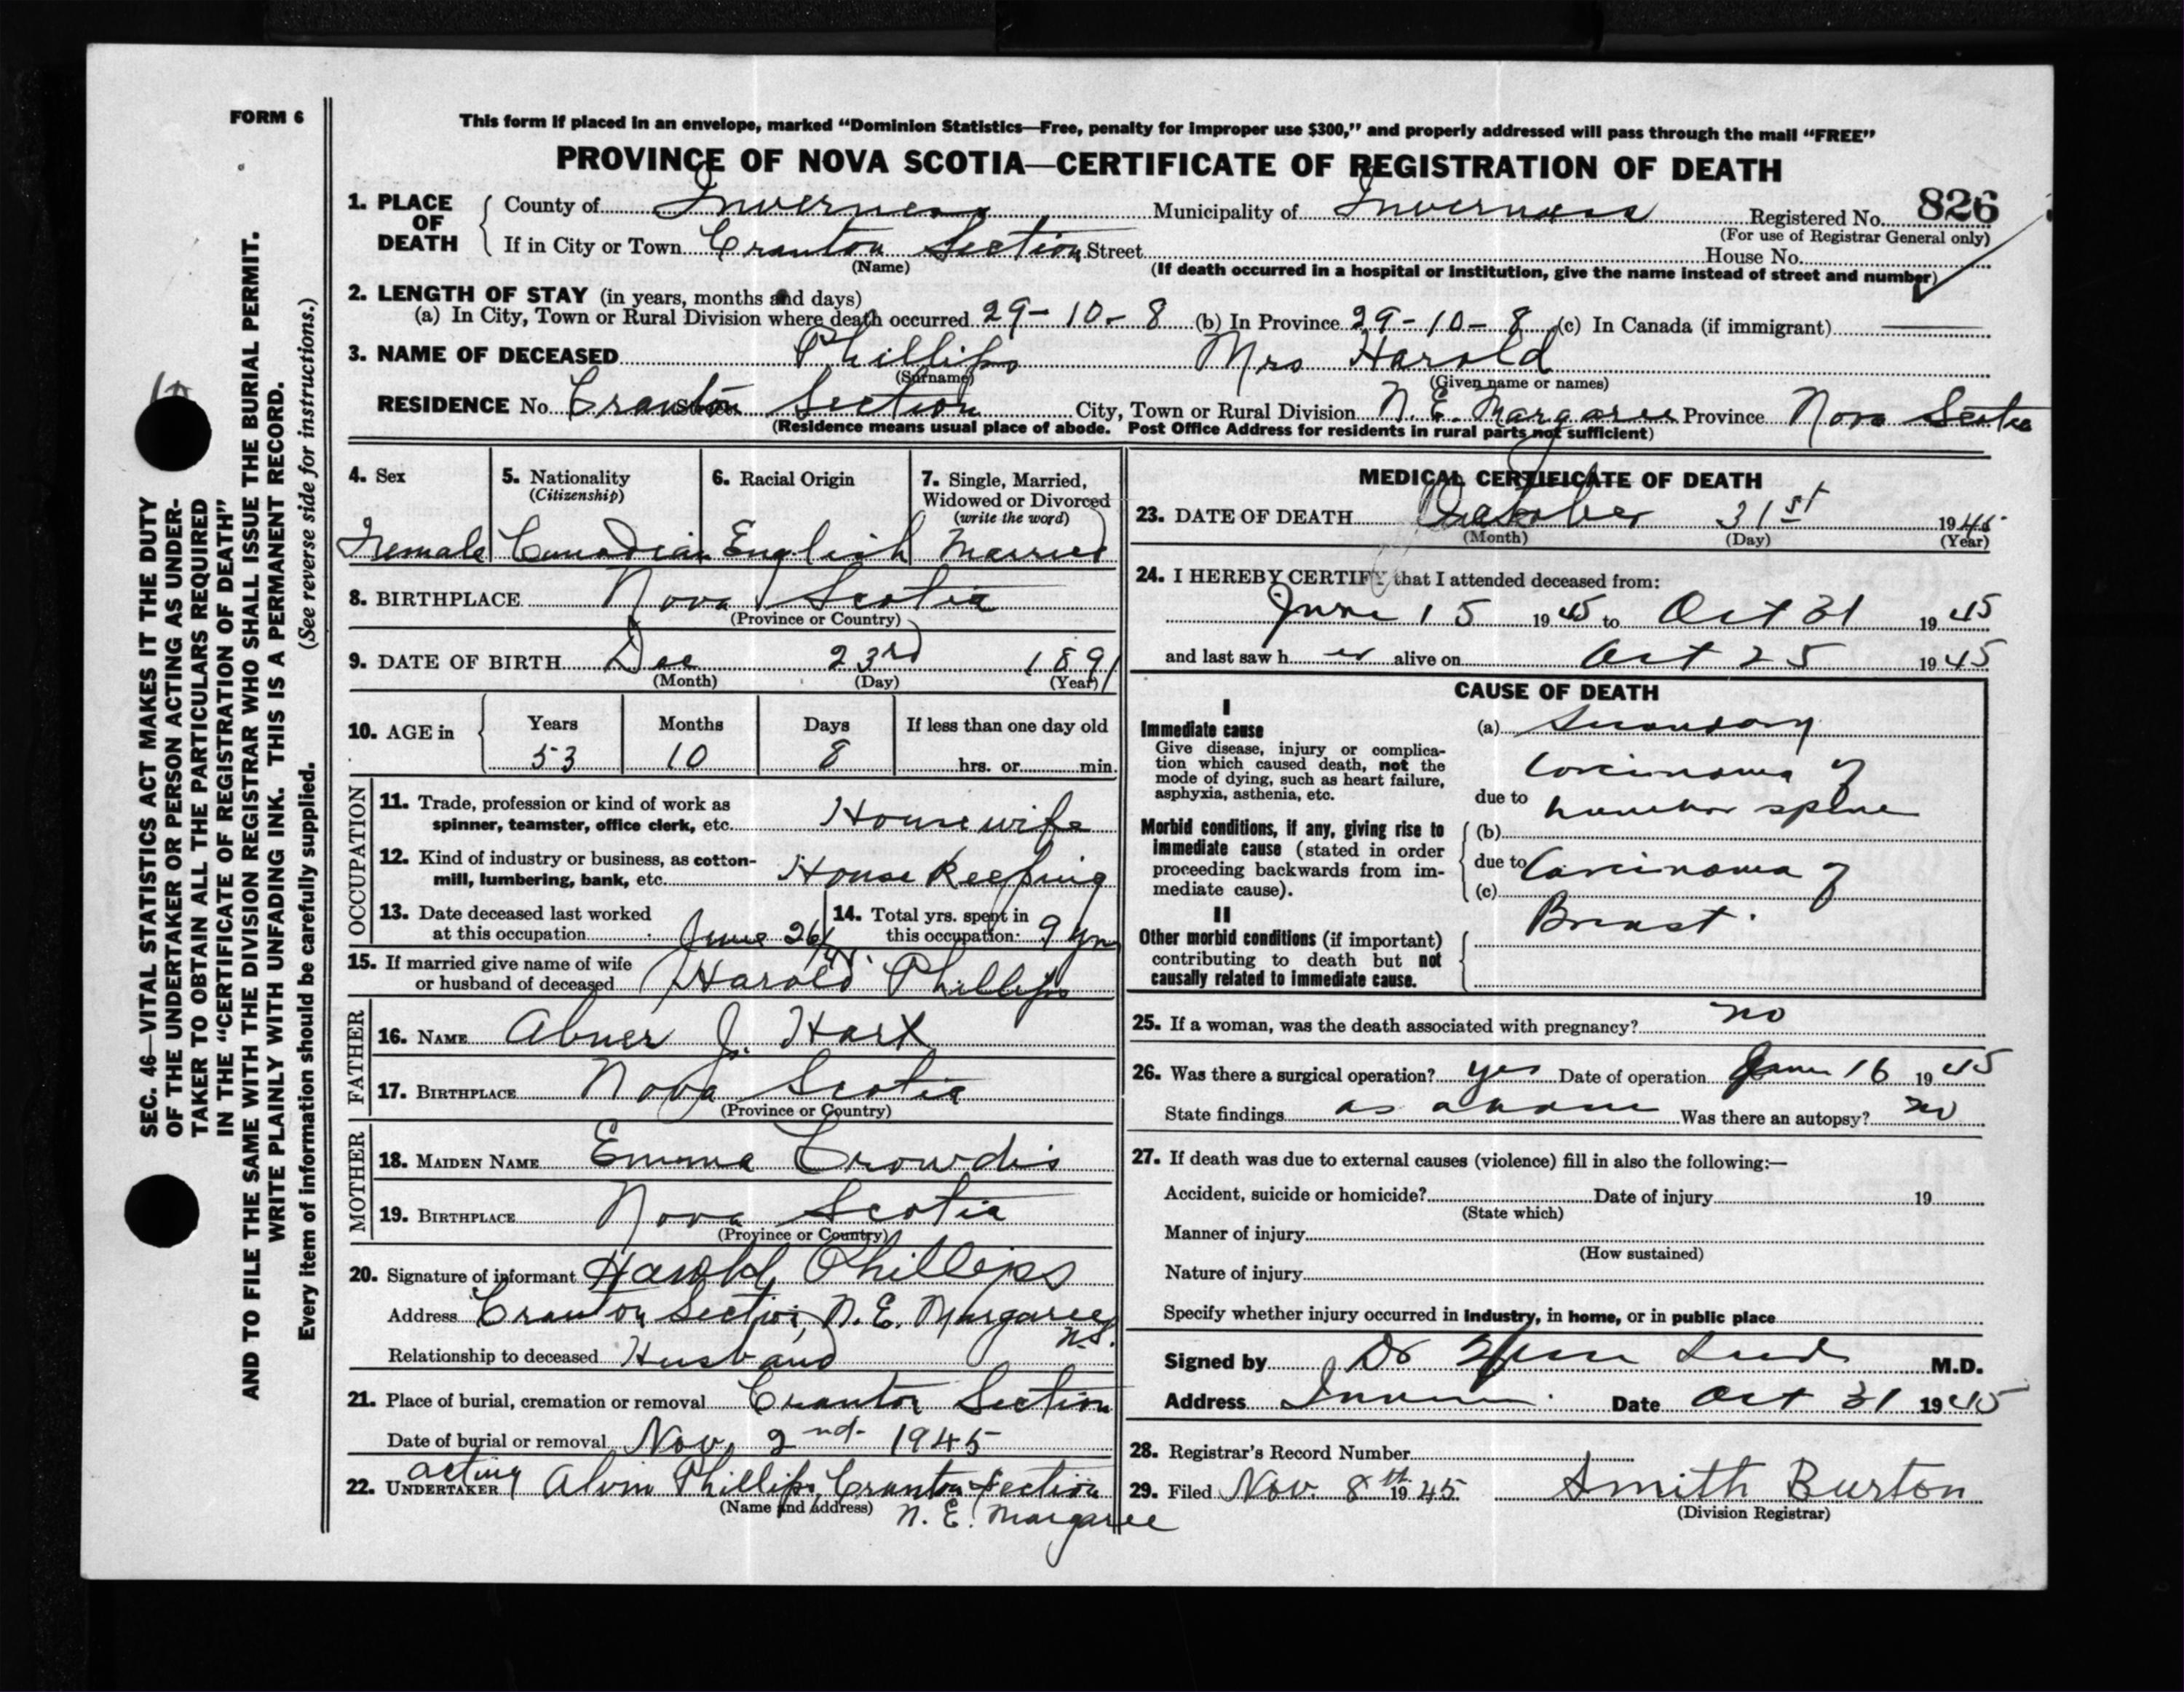 FORM 6
This form if placed in an envelope, marked “Dominion Statistics—Free, penalty for improper use $300,” and properly addressed will pass through the mail “FREE”
PROVINCE OF NOVA SCOTIA—CERTIFICATE OF REGISTRATION OF DEATH
1. PLACE OF DEATH County of Inverness Municipality of Inverness Registered No. 826
(For use of Registrar General only)
If in City or Town Cranton Section Street House No.
(Name) (If death occurred in a hospital or institution, give the name instead of street and number)
2. LENGTH OF STAY (in years, months and days)
(a) In City, Town or Rural Division where death occurred 29-10-8 (b) In Province 29-10-8 (c) In Canada (if immigrant) —
3. NAME OF DECEASED Phillips Mrs Harold
(Surname) (Given name or names)
RESIDENCE No. Cranton Section Street City, Town or Rural Division N. E. Margaree Province Nova Scotia
(Residence means usual place of abode. Post Office Address for residents in rural parts not sufficient)
4. Sex 5. Nationality (Citizenship) 6. Racial Origin 7. Single, Married, Widowed or Divorced (write the word)
Female Canadian English Married
8. BIRTHPLACE Nova Scotia
(Province or Country)
9. DATE OF BIRTH Dec 23rd 1891
(Month) (Day) (Year)
10. AGE in Years Months Days If less than one day old
53 10 8 hrs. or min.
OCCUPATION
11. Trade, profession or kind of work as
spinner, teamster, office clerk, etc. Housewife
12. Kind of industry or business, as cotton-
mill, lumbering, bank, etc. House Keeping
13. Date deceased last worked
at this occupation June 26/45.
14. Total yrs. spent in
this occupation: 9 yrs
15. If married give name of wife
or husband of deceased Harold Phillips
FATHER
16. NAME Abner J. Hart
17. BIRTHPLACE Nova Scotia
(Province or Country)
MOTHER
18. MAIDEN NAME Emma Crowdis
19. BIRTHPLACE Nova Scotia
(Province or Country)
20. Signature of informant Harold Phillips
Address Cranton Section, N. E. Margaree N.S.
Relationship to deceased Husband
21. Place of burial, cremation or removal Cranton Section
Date of burial or removal Nov, 2nd. 1945
22. acting UNDERTAKER Alvin Phillips, Cranton Section
(Name and address) N. E. Margaree
MEDICAL CERTIFICATE OF DEATH
23. DATE OF DEATH October 31st 1945
(Month) (Day) (Year)
24. I HEREBY CERTIFY that I attended deceased from:
June 15 1945 to Oct 31 1945
and last saw h er alive on Oct 25 1945
CAUSE OF DEATH
I
Immediate cause
Give disease, injury or complica-
tion which caused death, not the
mode of dying, such as heart failure,
asphyxia, asthenia, etc.
(a) Secondary
Carcinoma of
due to lumbar spine
Morbid conditions, if any, giving rise to
immediate cause (stated in order
proceeding backwards from im-
mediate cause).
(b)
due to Carcinoma of
(c)
Breast.
II
Other morbid conditions (if important)
contributing to death but not
causally related to immediate cause.
25. If a woman, was the death associated with pregnancy? no
26. Was there a surgical operation? yes Date of operation June 16 1945
State findings as above Was there an autopsy? no
27. If death was due to external causes (violence) fill in also the following:—
Accident, suicide or homicide? Date of injury 19
(State which)
Manner of injury
(How sustained)
Nature of injury
Specify whether injury occurred in industry, in home, or in public place
Signed by Dr M.D.
Address Date Oct 31 1945
28. Registrar's Record Number
29. Filed Nov. 8th. 1945. Smith Burton
(Division Registrar)
SEC. 46—VITAL STATISTICS ACT MAKES IT THE DUTY
OF THE UNDERTAKER OR PERSON ACTING AS UNDER-
TAKER TO OBTAIN ALL THE PARTICULARS REQUIRED
IN THE “CERTIFICATE OF REGISTRATION OF DEATH”
AND TO FILE THE SAME WITH THE DIVISION REGISTRAR WHO SHALL ISSUE THE BURIAL PERMIT.
WRITE PLAINLY WITH UNFADING INK. THIS IS A PERMANENT RECORD.
Every item of information should be carefully supplied. (See reverse side for instructions.)